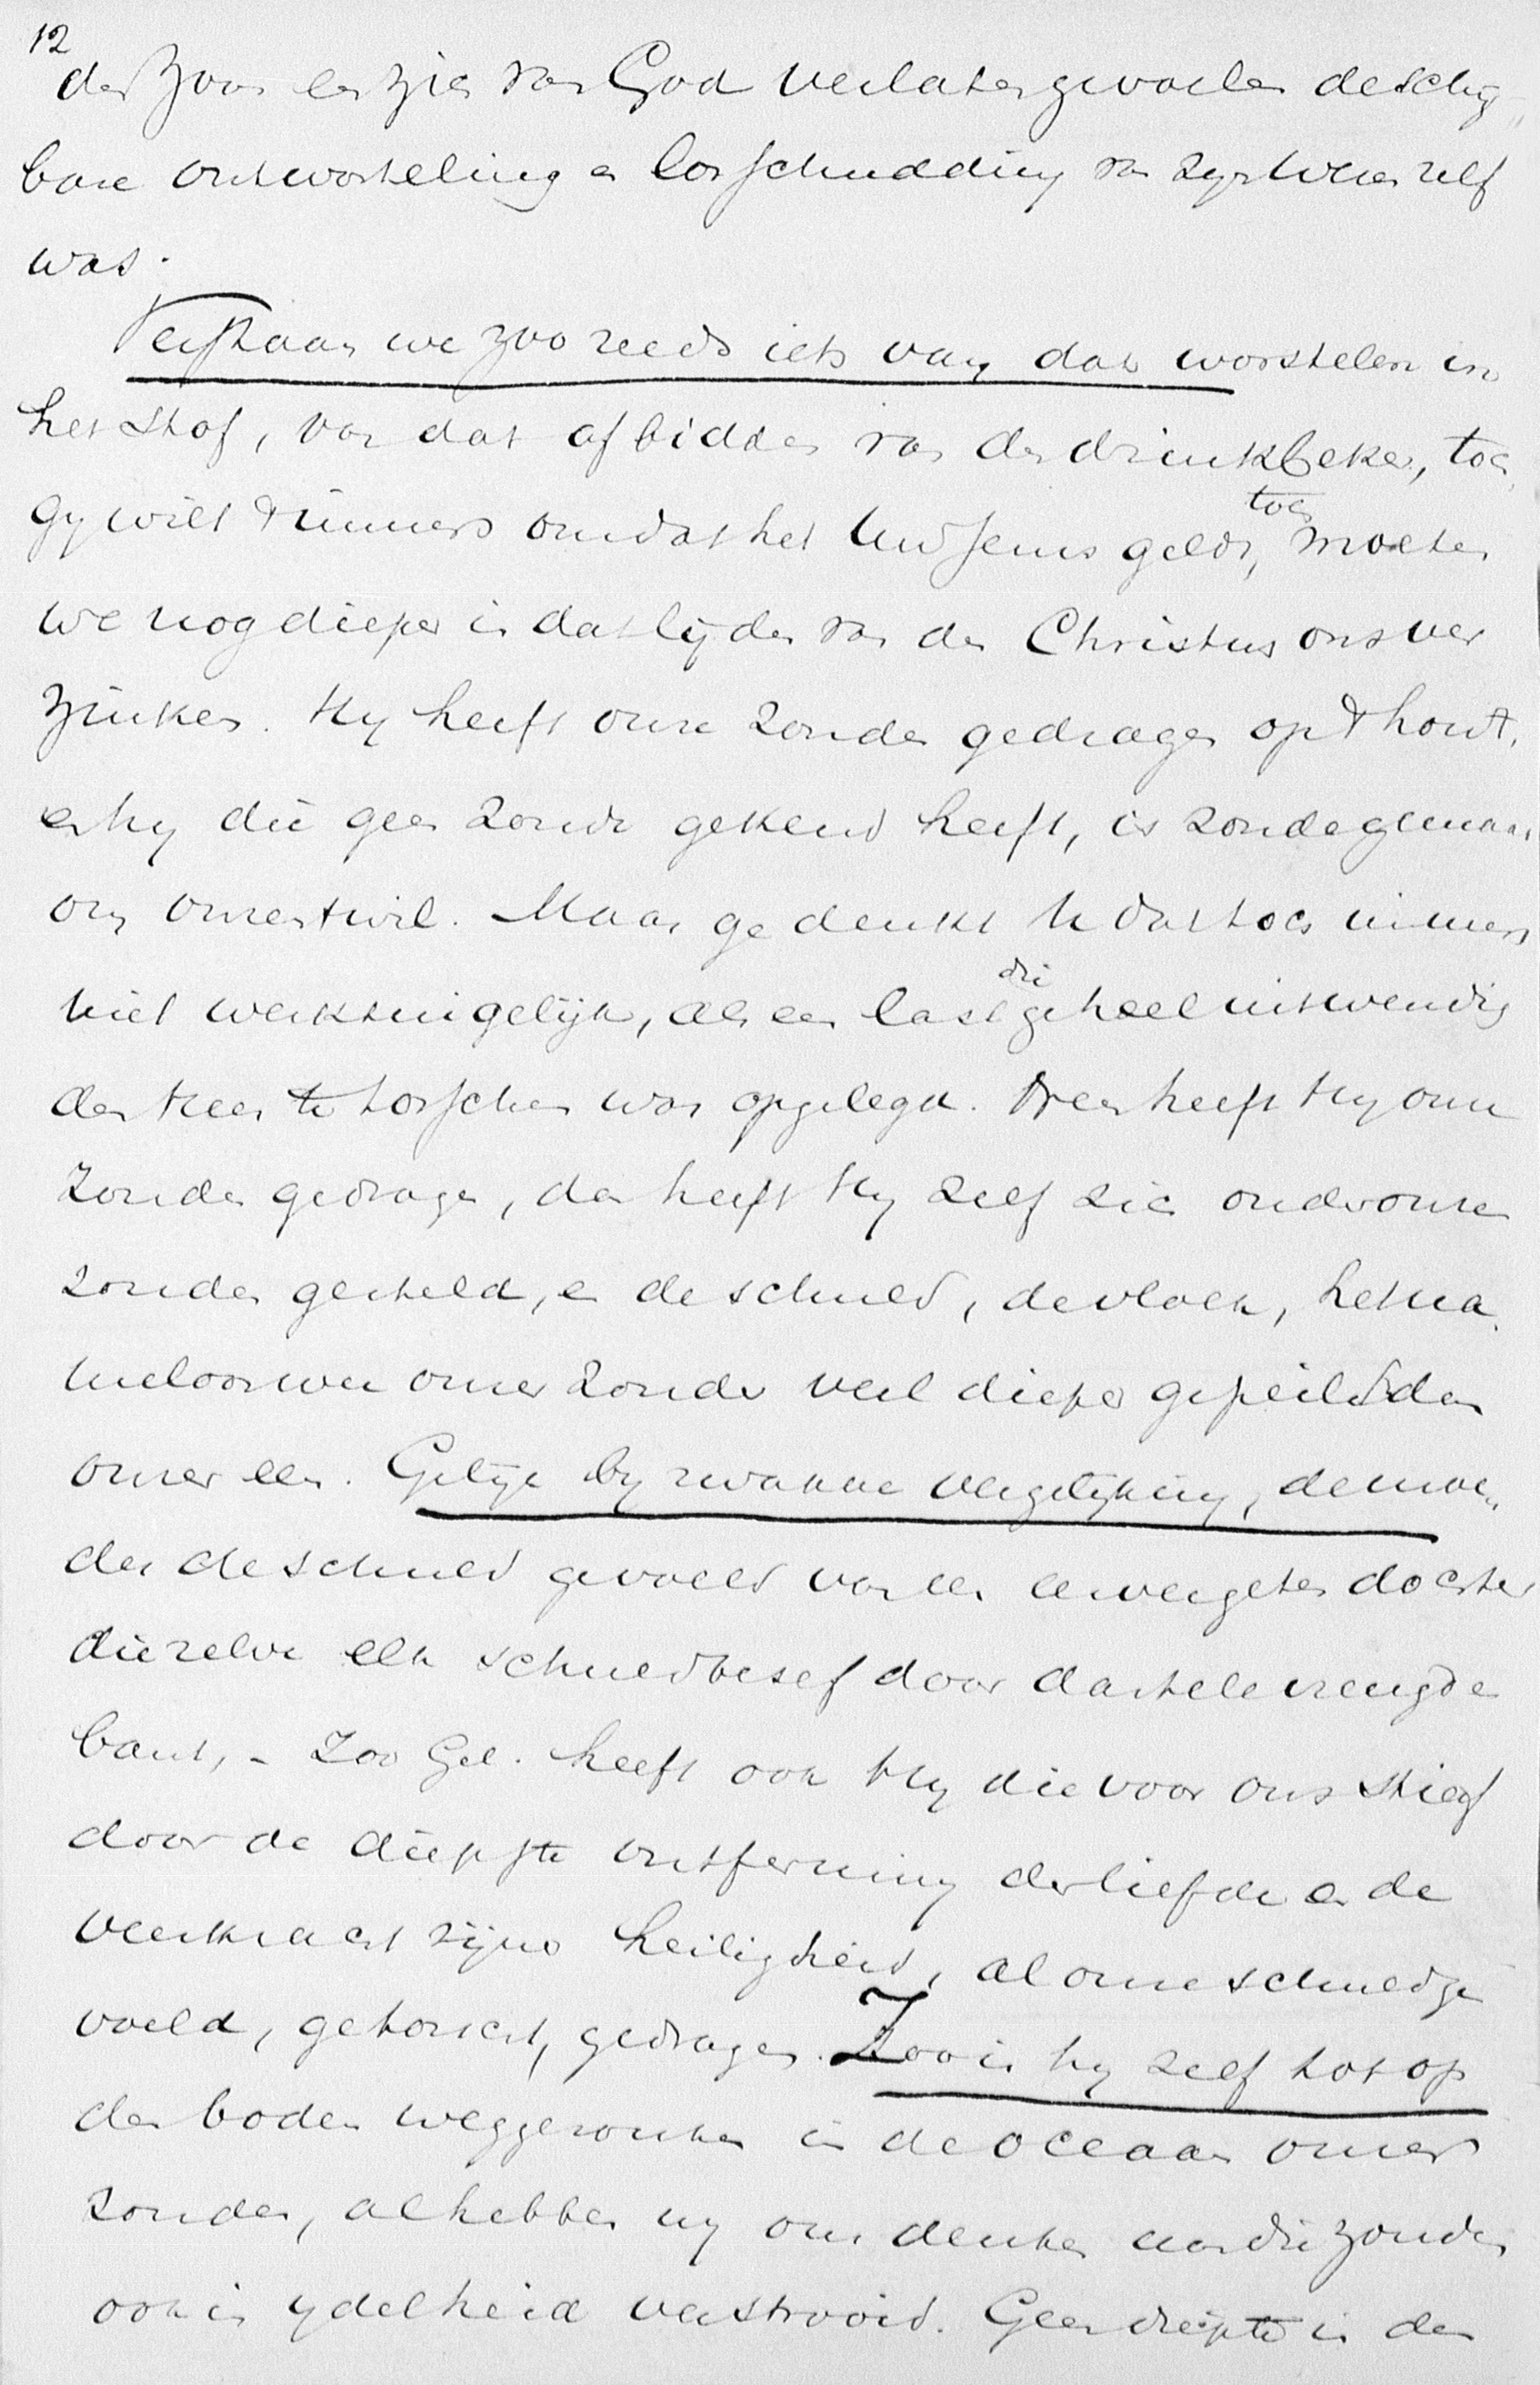 12
den Zoon en zich van God verlaten gevoelen de schrik
bare ontworteling en losschudding van zijn Wezen zelf
was.
Verstaan we zoo reeds iets van dat worstelen in
het stof, van dat afbidden van den drinkbeker, toch,
gy wilt 't immers omdat het Uw Jesus geldt, toch moeten
we nog dieper in dat lijden van den Christus ons ver
zinken. Hy heeft onze zonden gedragen op 't hout,
en hy die geen zonde gekend heeft, is zonde gemaakt
om onzentwil. Maar ge denkt U dat toch immers
niet werktuigelijk, als een last die geheel uitwendig
den Heer te torschen was opgelegd. Neen heeft Hy onze
zonden gedragen, dan heeft Hy zelf zich onder onze
zonden gesteld, en de schuld, de vloek, het na
meloos wee onzer zonde veel dieper gepeild dan
onzer een. Gelijk by zwakke vergelijking, de moe
der de schuld gevoeld van een eervergeten dochter
die zelve elk schuldbesef door dartele vreugde
bant, - Zoo Gel. heeft ook Hy die voor ons stierf
door de diepste ontferming der liefde en de
veerkracht zijner heiligheid, al onze schuld ge
voeld, getorscht, gedragen. Zoo is hy zelf tot op
den bodem weggezonken in de oceaan onzer
zonden, al hebben wy ons denken aan die zonden
ook in ydelheid verstrooid. Geen diepte in den